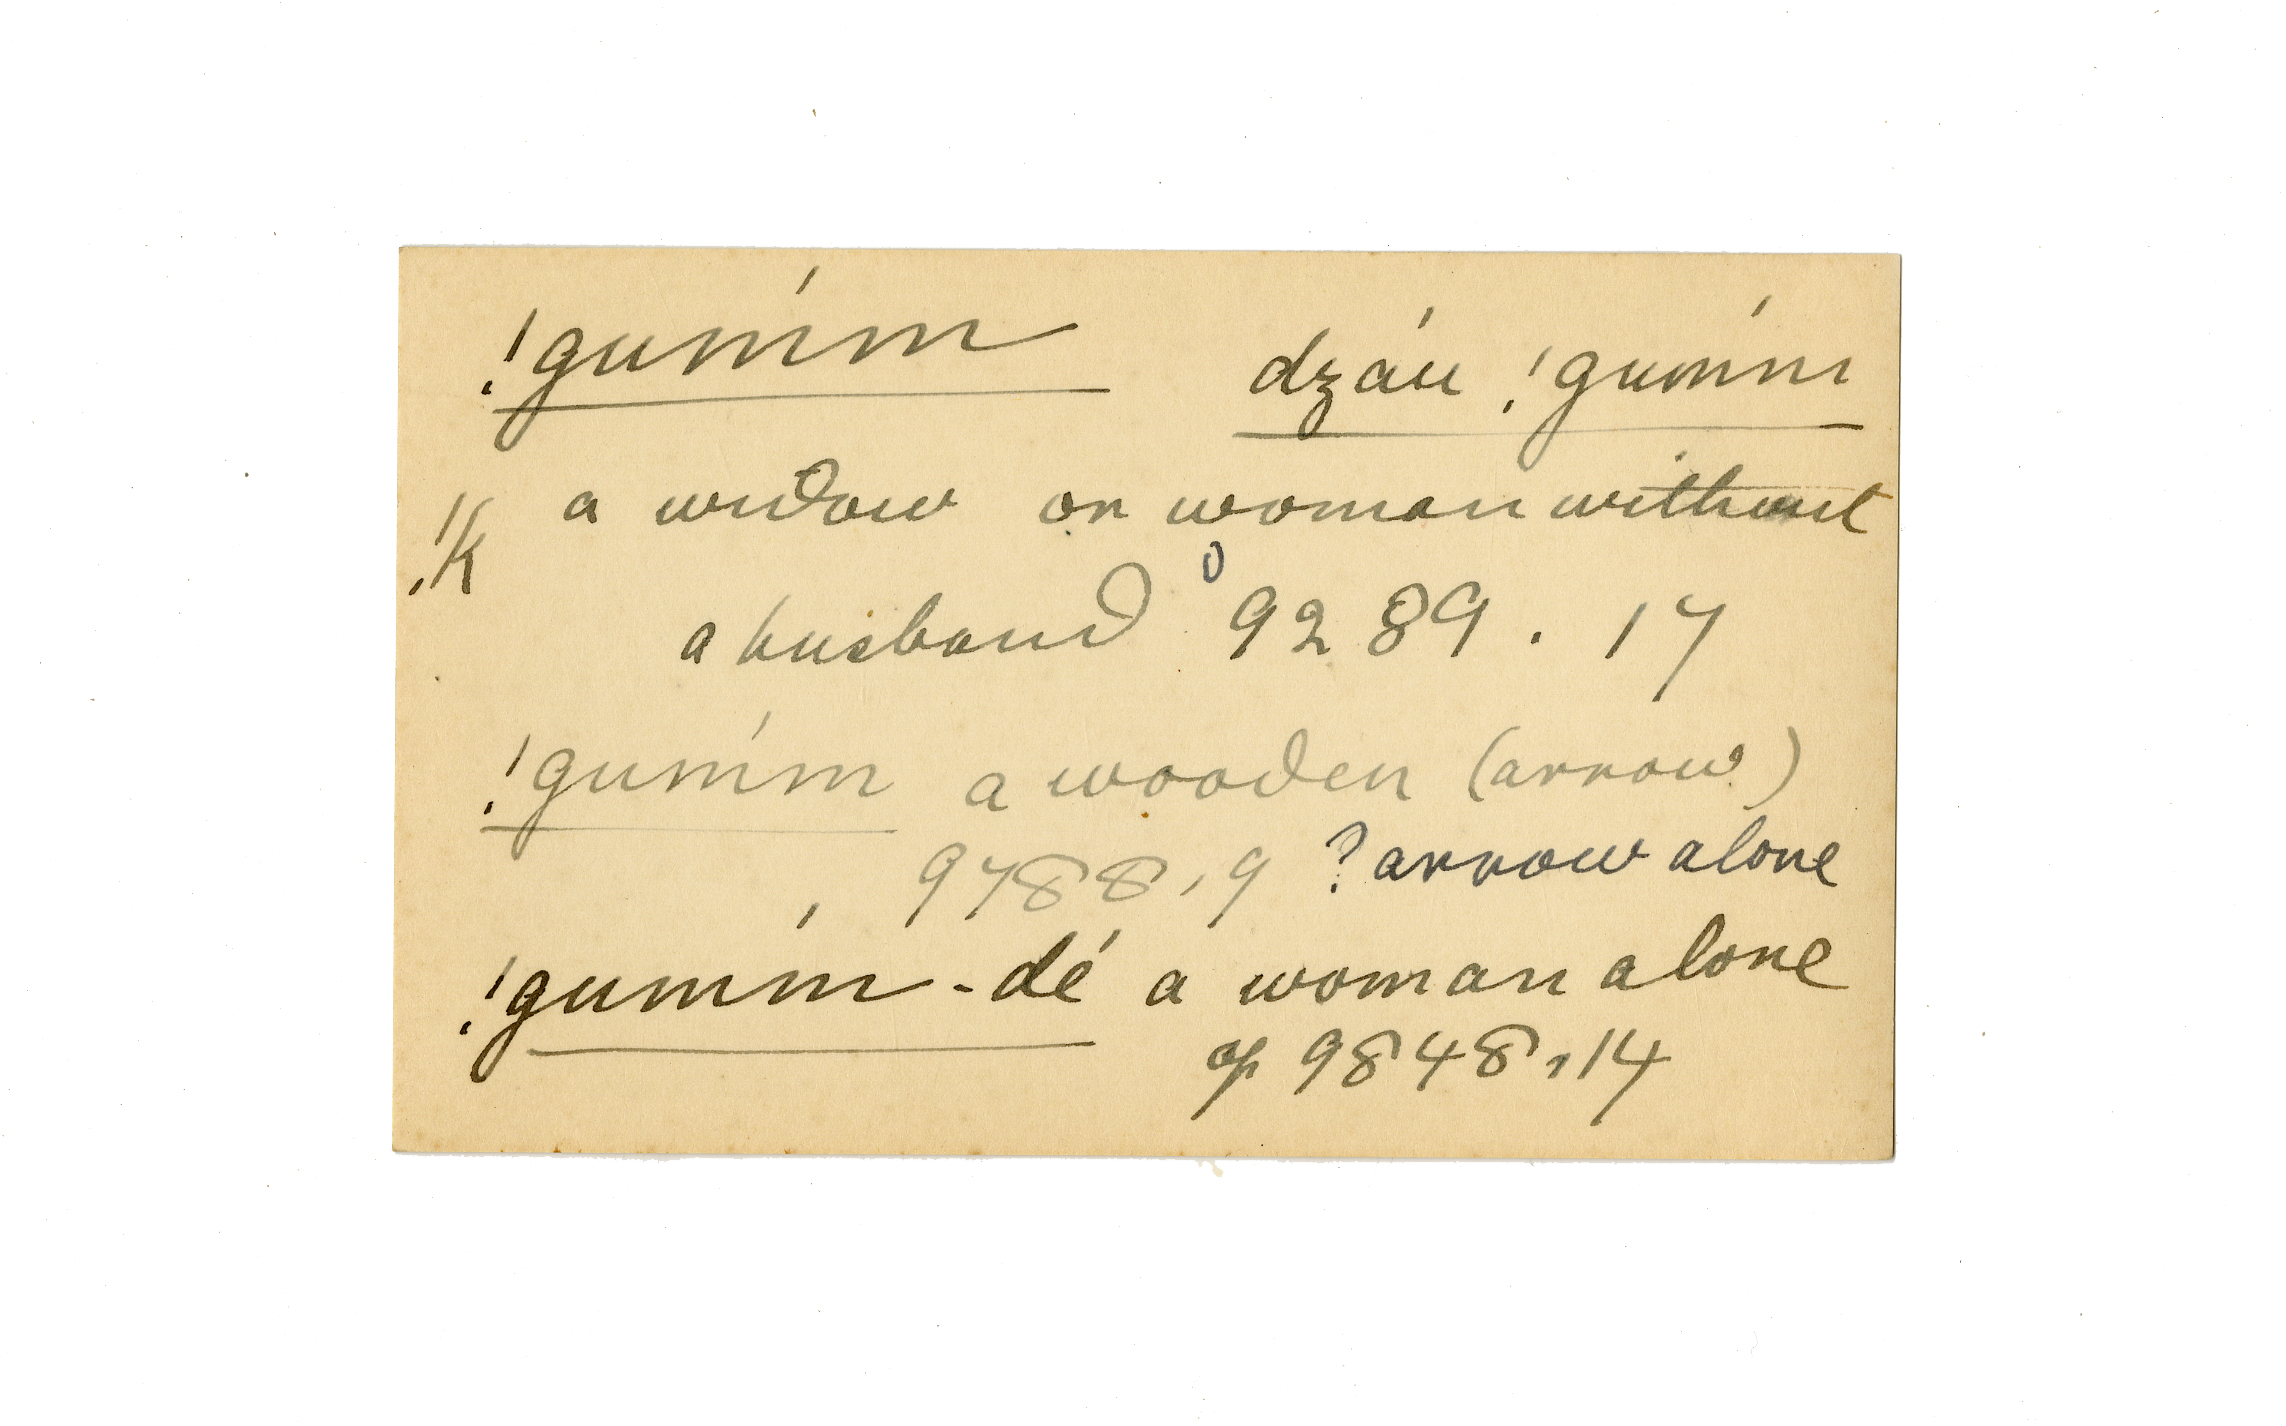 !gum̍m dzáu !gum̍m
!k a widow or woman without
a husband 9289. 17
!gum̍m a wooden (arrow)
9788, 9 ? arrow alone
!gum̍m - dé a woman alone
op 9848, 14